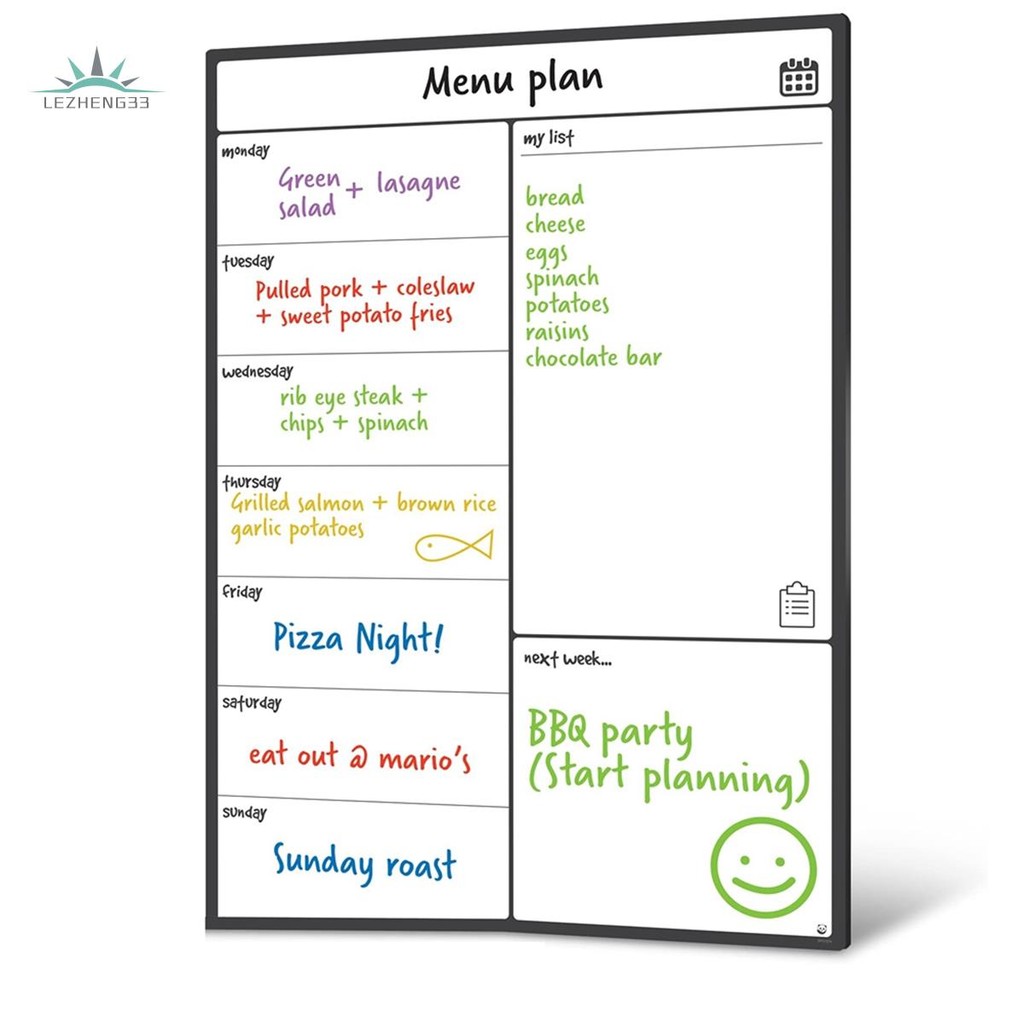 LEZHENG33
Menu plan
monday
Green
salad + lasagne
tuesday
Pulled pork + coleslaw
+ sweet potato fries
wednesday
rib eye steak +
chips + spinach
thursday
Grilled salmon + brown rice
garlic potatoes
friday
Pizza Night!
saturday
eat out @ mario's
sunday
Sunday roast
my list
bread
cheese
eggs
spinach
potatoes
raisins
chocolate bar
next week...
BBQ party
(Start planning)